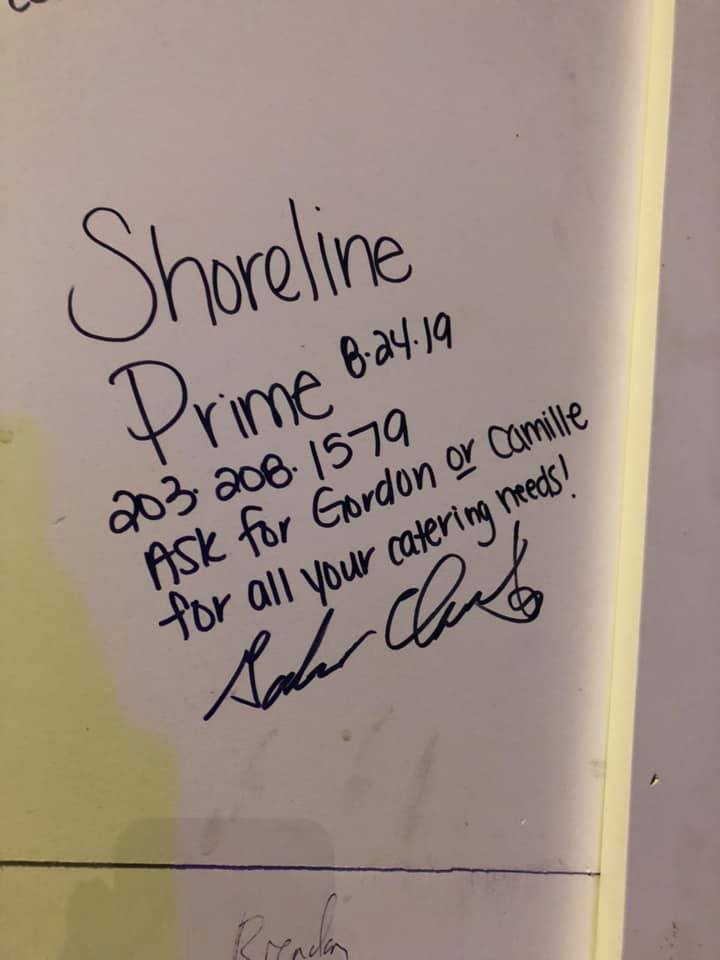 Shoreline
Prime 8.24.19
203.208.1579
Ask for Gordon or Camille
for all your catering needs!
Brendan